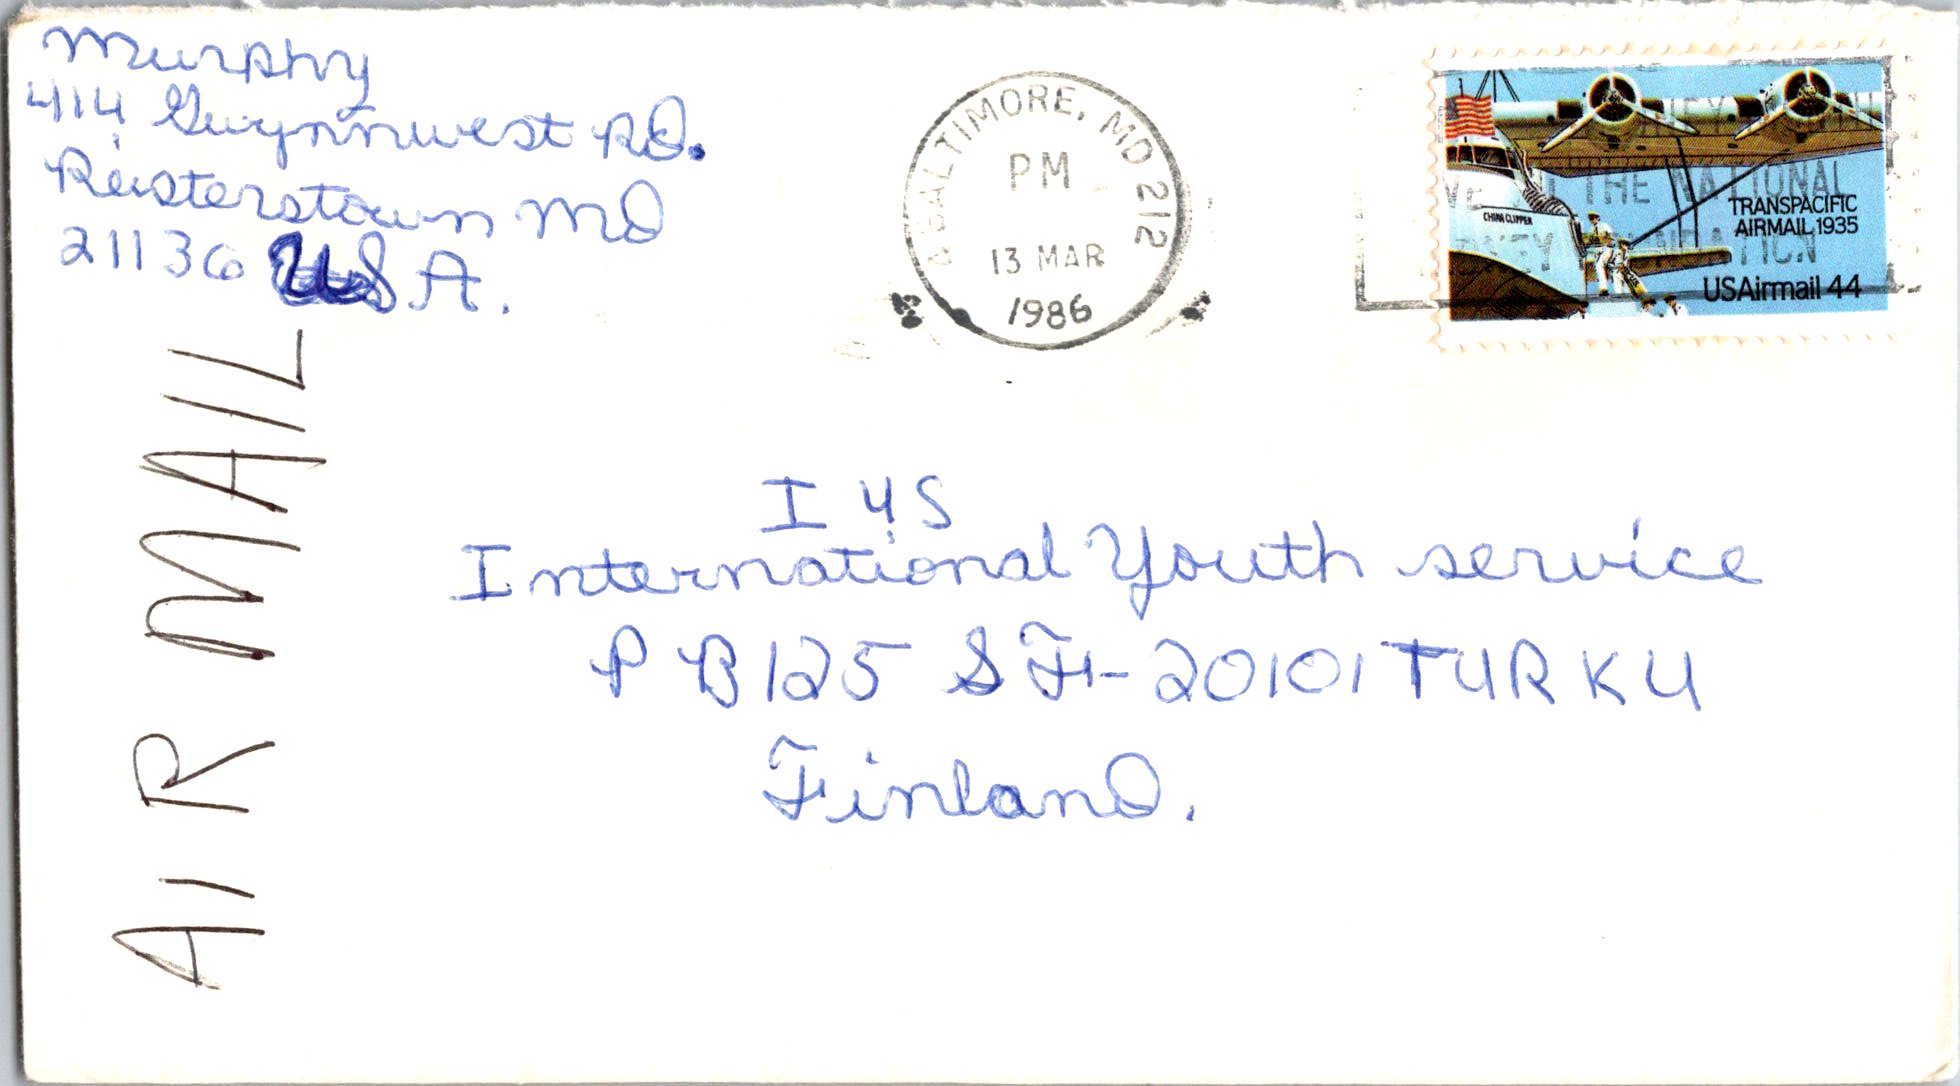 Murphy
414 Gwynnwest RD.
Reisterstown MD
21136 USA.
BALTIMORE, MD 212
PM
13 MAR
1986
THE NATIONAL
CHINA CLIPPER
TRANSPACIFIC
AIRMAIL 1935
USAirmail 44
AIR MAIL
I Y S
International Youth service
P B 125 SF-20101 TURKU
Finland.